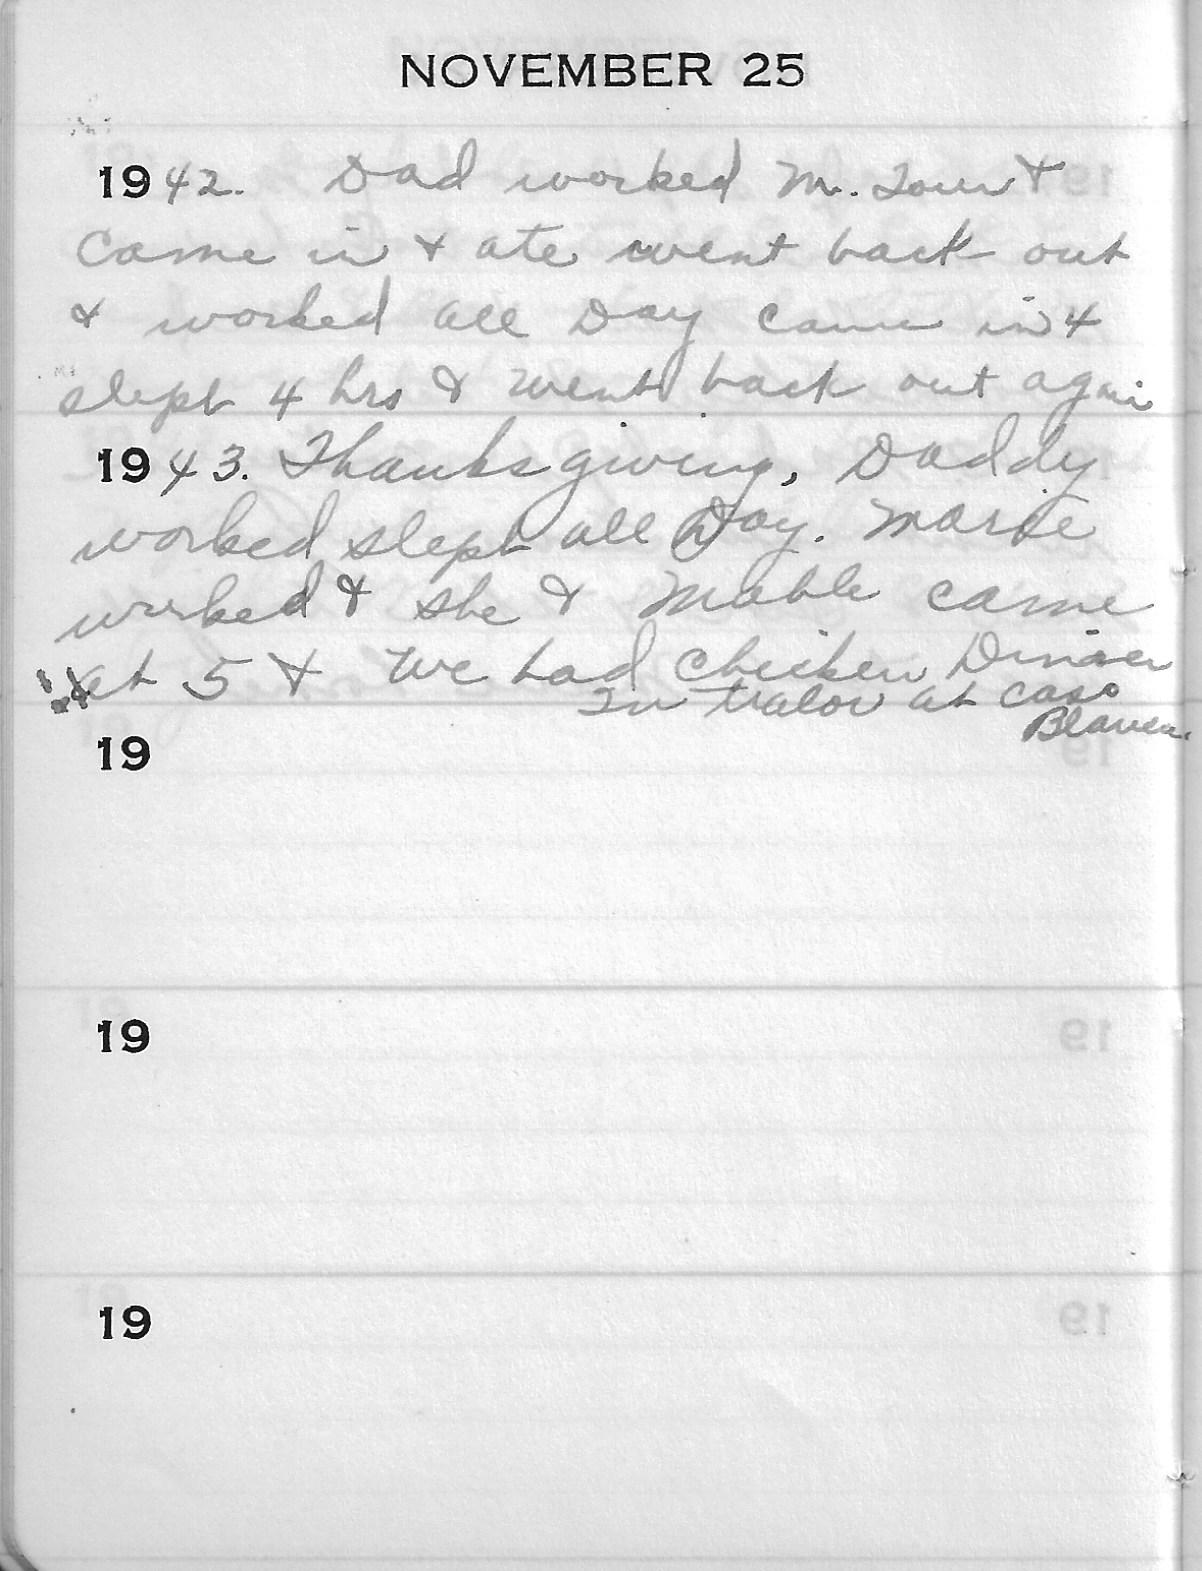 NOVEMBER 25
1942. Dad worked M. Tour &
Came in & ate went back out
& worked all Day came in &
slept 4 hrs & went back out again
1943. Thanksgiving, Daddy
worked slept all Day. Marie
worked & she & Mable came
at 5 & we had chicken Dinner
In tralor at Casa
19
19
19